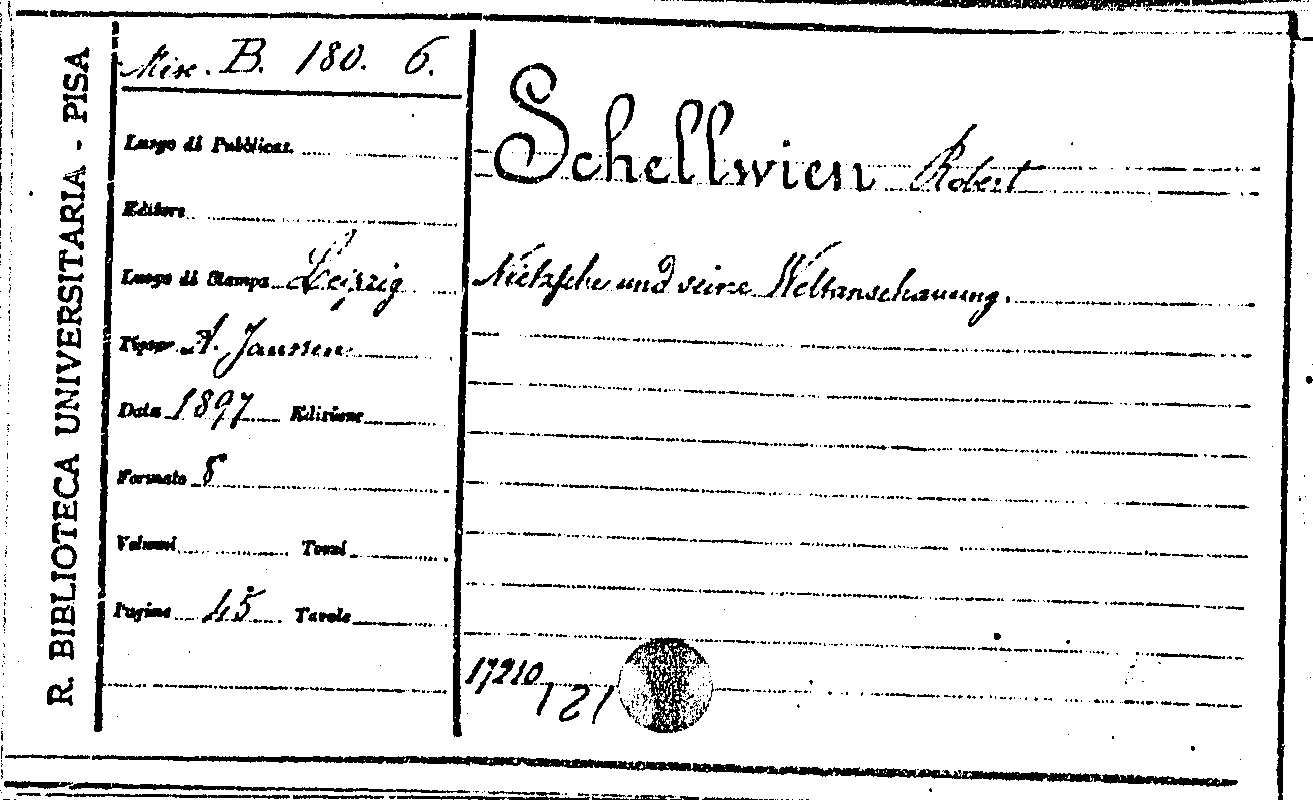 R. BIBLIOTECA UNIVERSITARIA - PISA
Misc. B. 180. 6.
Luogo di Pubblicaz.
Editore
Luogo di Stampa Leipzig
Tipogr. A. Janssen
Data 1897 Edizione
Formato 8
Volumi Tomi
Pagine 45 Tavole
Schellwien Robert
Nietzsche und seine Weltanschauung.
17210
121